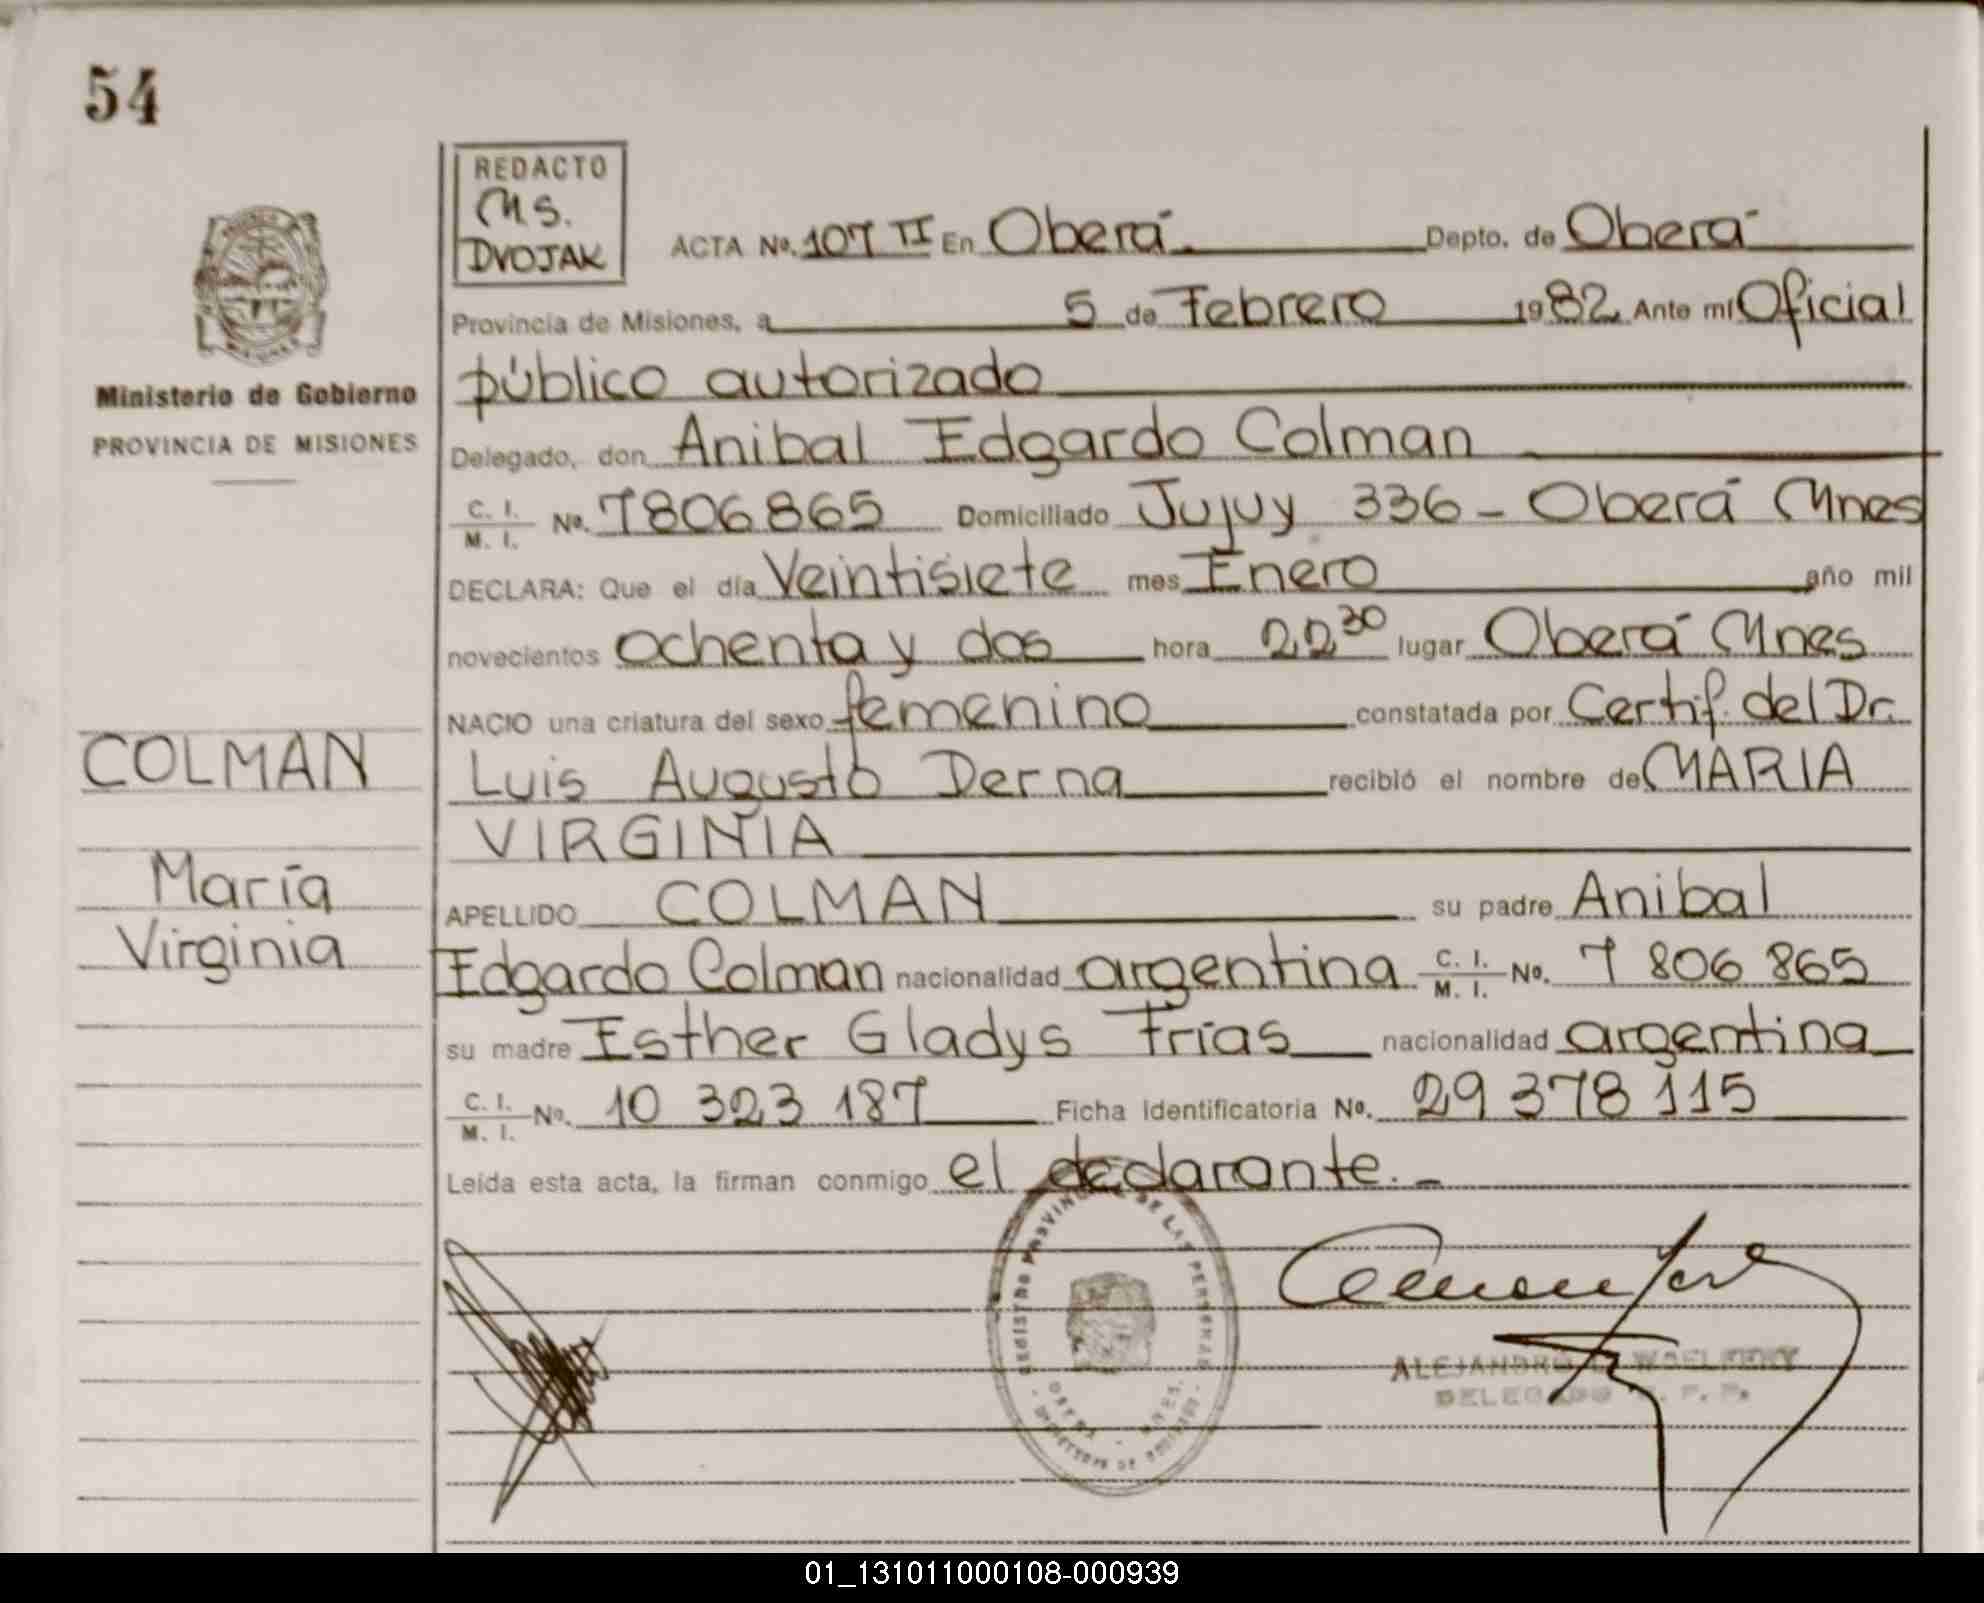 54
REDACTO
MS.
DVOJAK
ACTA Nº. 107 II En Oberá Depto. de Oberá
Provincia de Misiones, a 5 de Febrero 1982 Ante mí Oficial
público autorizado
Delegado, don Anibal Edgardo Colman
C. I. / M. I. Nº. 7806865 Domiciliado Jujuy 336 - Oberá Mnes
DECLARA: Que el día Veintisiete mes Enero año mil
novecientos ochenta y dos hora 22 30 lugar Oberá Mnes
NACIO una criatura del sexo femenino constatada por Certif. del Dr.
Luis Augusto Derna recibió el nombre de MARIA
VIRGINIA
APELLIDO COLMAN su padre Anibal
Edgardo Colman nacionalidad argentina C. I. / M. I. Nº. 7 806 865
su madre Esther Gladys Frías nacionalidad argentina
C. I. / M. I. Nº. 10 323 187 Ficha Identificatoria Nº. 29 378 115
Leída esta acta, la firman conmigo el declarante.-
Ministerio de Gobierno
PROVINCIA DE MISIONES
COLMAN
María
Virginia
REGISTRO PROVINCIAL DE LAS PERSONAS
ALEJANDRO
DELEGADO
01_131011000108-000939